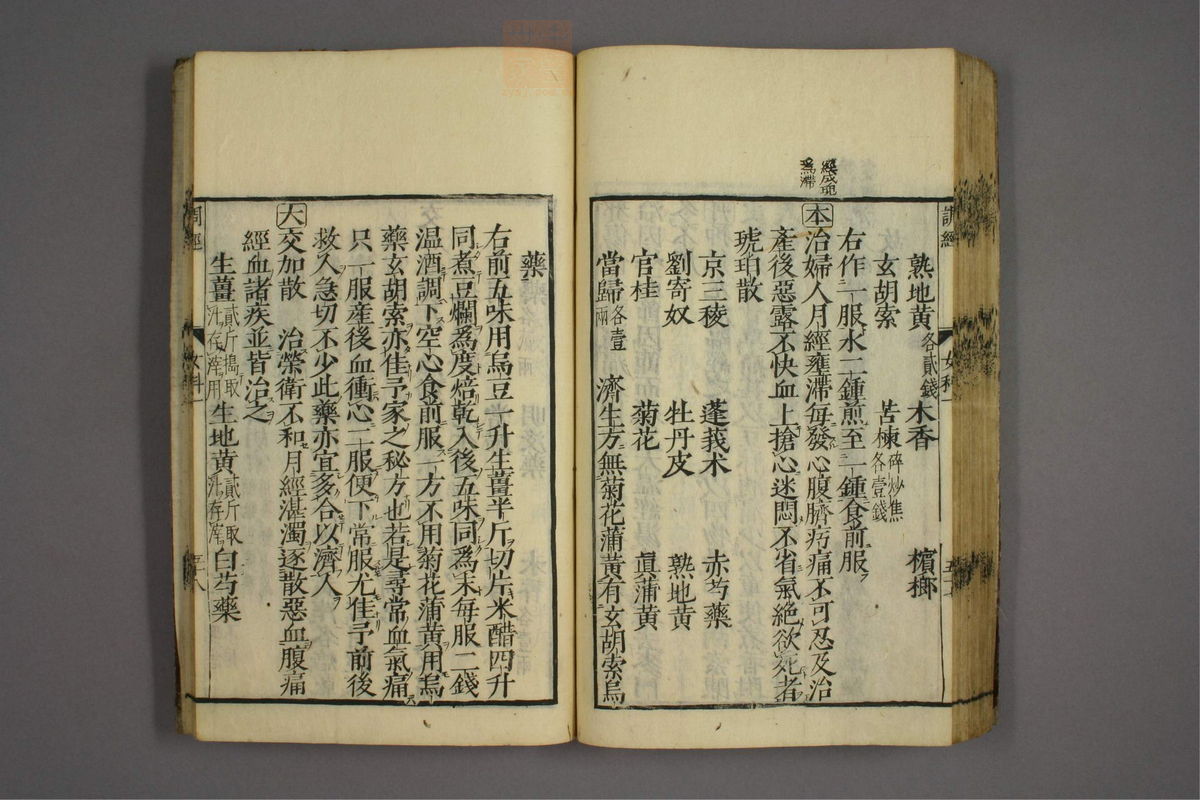 經成塊
爲滯
調經
女科
熟地黃各貳錢 木香 檳榔
玄胡索 苦楝碎炒焦各壹錢
右作一服水二鍾煎至一鍾食前服
本 治婦人月經壅滯每發心腹臍㽲痛不可忍及治
產後惡露不快血上搶心迷悶不省氣絕欲死者
琥珀散
京三稜 蓬莪术 赤芍藥
劉寄奴 牡丹皮 熟地黃
官桂 菊花 眞蒲黃
當歸各壹兩 濟生方無菊花蒲黃有玄胡索烏
藥
右前五味用烏豆一升生薑半斤切片米醋四升
同煮豆爛爲度焙乾入後五味同爲末每服二錢
溫酒調下空心食前服一方不用菊花蒲黃用烏
藥玄胡索亦佳予家之秘方也若是尋常血氣痛
只一服產後血衝心二服便下常服尤佳予前後
救人急切不少此藥亦宜多合以濟人
大 交加散 治榮衛不和月經湛濁逐散惡血腹痛
經血諸疾並皆治之
生薑貳斤搗取汁存滓用 生地黃貳斤取汁存滓 白芍藥
調經
女科
五八